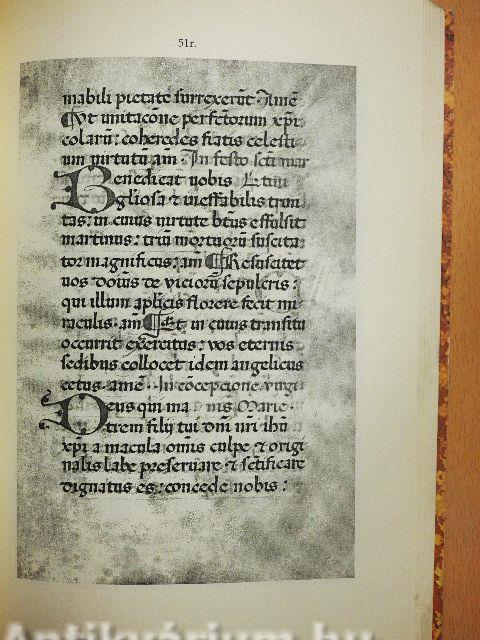 51r.
mabili pietate surrexerūt · Amē
Vt imitacōne perfectorum xp̄i
colarū: coheredes fiatis celesti
um virtutū am̄ · In festo scti mar
Benedicat vobis
gliosa ⁊ ineffabilis trini
tas: in cuius virtute btūs effulsit
martinus: triū mortuorū suscita
tor magnificus: am̄ Resuscitet
vos dominus de viciorū sepulcris:
qui illum aplicis florere fecit mi
raculis · am̄ Et in cuius transitu
occurrit exercitus: vos eternis
sedibus collocet idem angelicus
cetus · amē · In cōcepcione virgi
Deus qui ma nis Marie ·
trem filij tui dn̄i nr̄i ihū
xp̄i a macula om̄is culpe ⁊ origi
nalis labe preseruare ⁊ sctificare
dignatus es: concede nobis:
Antikvárium.hu